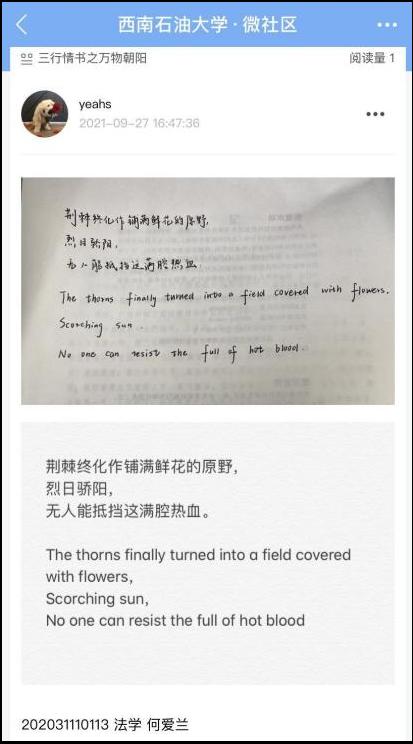 西南石油大学·微社区
三行情书之万物朝阳 阅读量 1
yeahs
2021-09-27 16:47:36
荆棘终化作铺满鲜花的原野,
烈日骄阳,
无人能抵挡这满腔热血.
The thorns finally turned into a field covered with flowers.
Scorching sun.
No one can resist the full of hot blood.
荆棘终化作铺满鲜花的原野,
烈日骄阳,
无人能抵挡这满腔热血。
The thorns finally turned into a field covered
with flowers,
Scorching sun,
No one can resist the full of hot blood
202031110113 法学 何爱兰